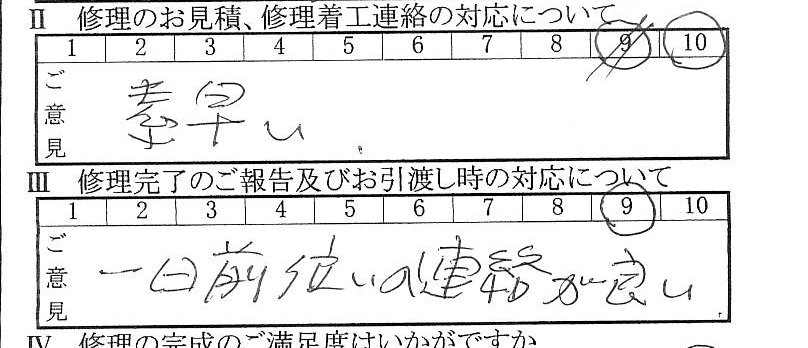 Ⅱ 修理のお見積、修理着工連絡の対応について
1 2 3 4 5 6 7 8 9 10
ご意見
素早い.
Ⅲ 修理完了のご報告及びお引渡し時の対応について
1 2 3 4 5 6 7 8 9 10
ご意見
一日前位いの連絡が良い.
Ⅳ 修理の完成のご満足度はいかがですか